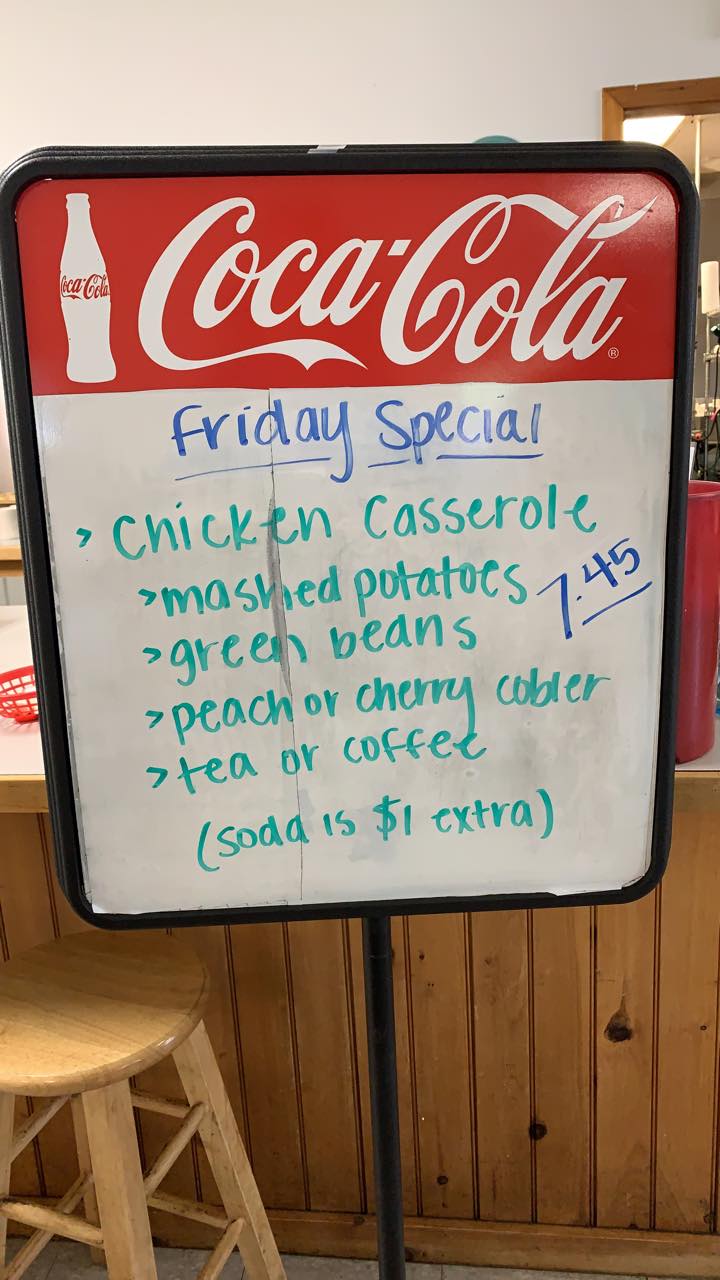 Coca-Cola
Coca-Cola ®
Friday Special
> Chicken Casserole
> mashed potatoes
7.45
> green beans
> peach or cherry cobler
> tea or coffee
(soda is $1 extra)